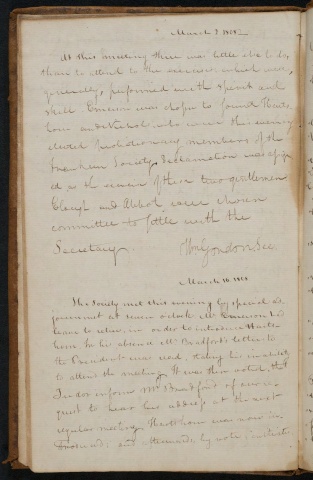 March 3 1818
At this meeting there was little else to do,
than to attend to the exercises which were,
generally, performed with spirit and
skill. Emerson was chosen to
who were this evening
elected probationary members of the
Society. Declamation was
ed as the exercise of these two gentlemen
and Abbot were chosen
committee to settle with the
Secretary.
Wm Gordon Sec.
March 10. 1818
The Society met this evening by special ad
journment at seven o'clock. Mr Emerson had
leave to retire, in order to introduce
horn. In his absence Mr Bradford's letter to
the President was read, stating his inability
to attend the meeting. It was then voted, that
inform Mr Bradford of our re
quest to hear his address at the next
regular meeting. Hawthorn was now in
troduced; and afterwards, by vote,